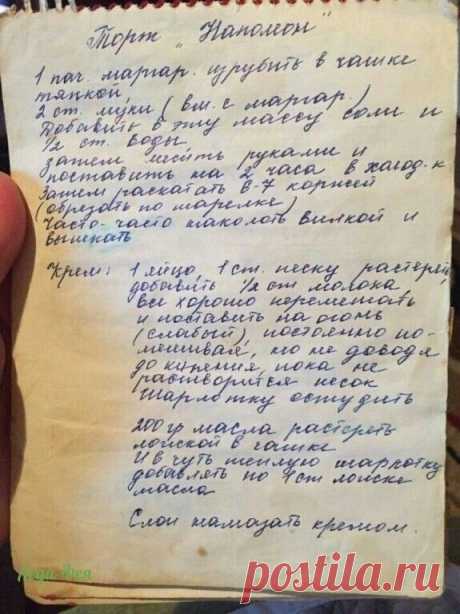 Торж "Наполеон"
1 пач. маргар. изрубить в чашке
тяпкой
2 ст. муки (вм. с маргар.)
Добавить в эту массу соли и
1/2 ст. воды
затем месить руками и
поставить на 2 часа в холод-к
Затем раскатать 6-7 коржей
(обрезать по тарелке)
Часто-часто наколоть вилкой и
выпекать
Крем: 1 яйцо, 1 ст. песку растереть
добавить 1/2 ст молока
все хорошо перемешать
и поставить на огонь
(слабый), постоянно по-
мешивая, но не доводя
до кипения, пока не
растворится песок
Шарлотку остудить
200 гр масла растереть
ложкой в чашке
И в чуть теплую шарлотку
добавлять по 1 ст ложке
масла
Слои намазать кремом.
postila.ru